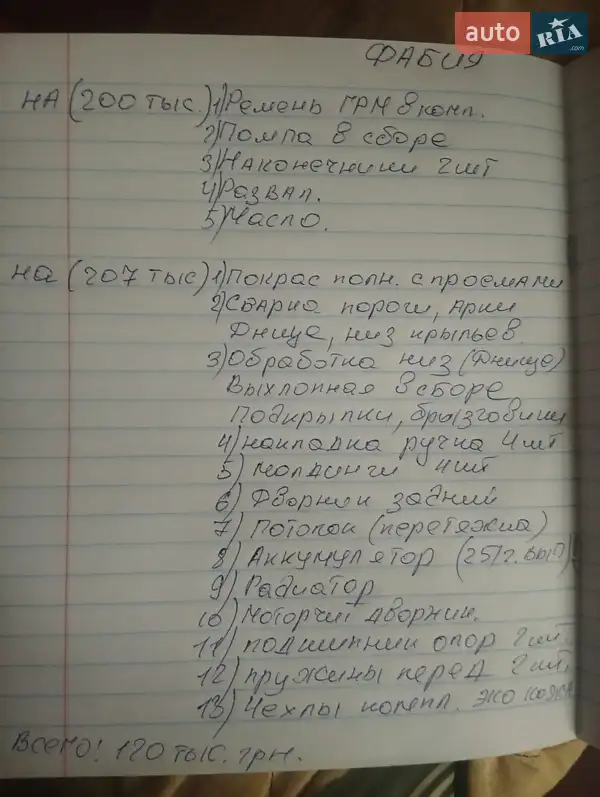 auto RIA .com
ФАБИЯ
НА (200 тыс.) 1) Ремень ГРМ в комп.
2) Помпа в сборе
3) Наконечники 2 шт
4) Развал.
5) Масло.
на (207 тыс) 1) Покрас полн. с проемами
2) Сварка пороги, Арки
Днище, низ крыльев
3) Обработка низ (Днище)
Выхлопная в сборе
Подкрылки, брызговики
4) накладка ручка 4 шт
5) молдинги 4 шт
6) Дворник задний
7) Потолок (перетяжка)
8) Аккумулятор (25 г. вып)
9) Радиатор
10) Моторчик дворник.
11) подшипник опор 2 шт.
12) пружины перед 2 шт.
13) Чехлы компл. эко кожа
Всего! 120 тыс. грн.